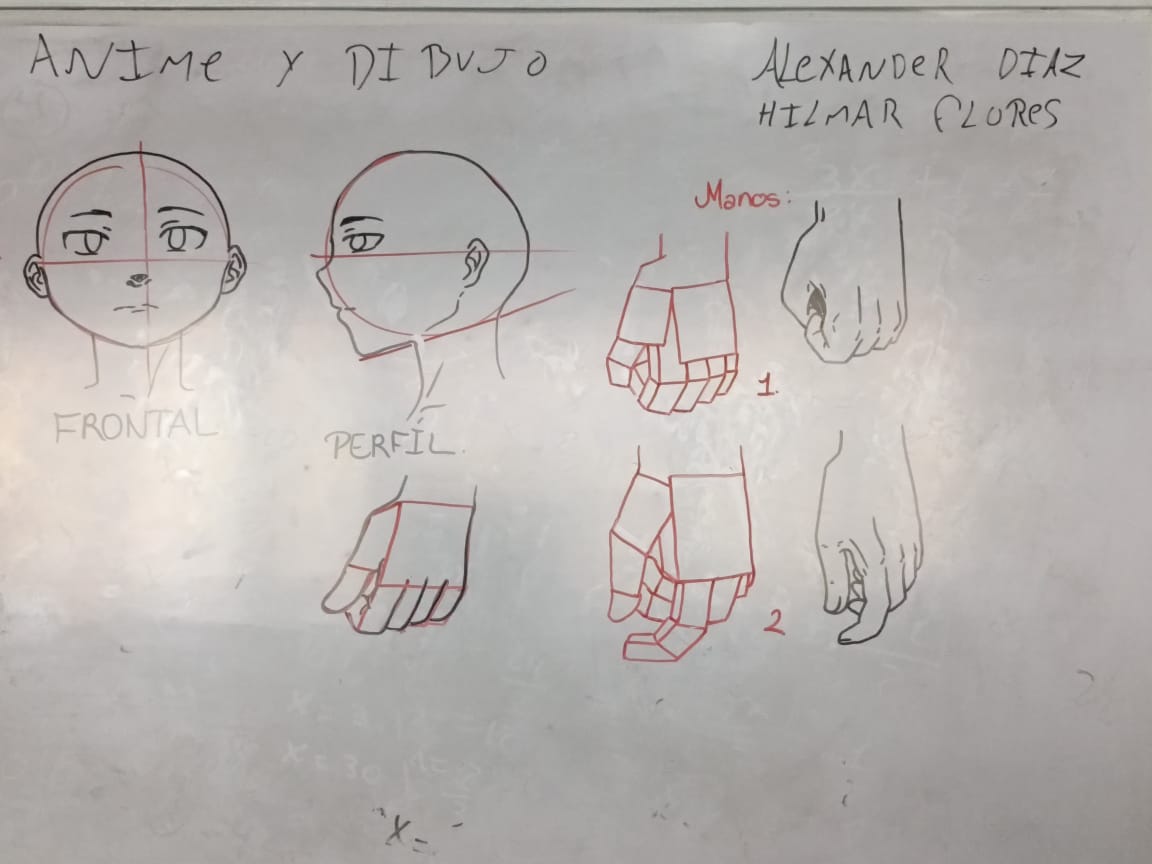 ANIME Y DIBUJO
ALEXANDER DIAZ
HILMAR FLORES
Manos:
FRONTAL
PERFÍL.
1.
2
X=